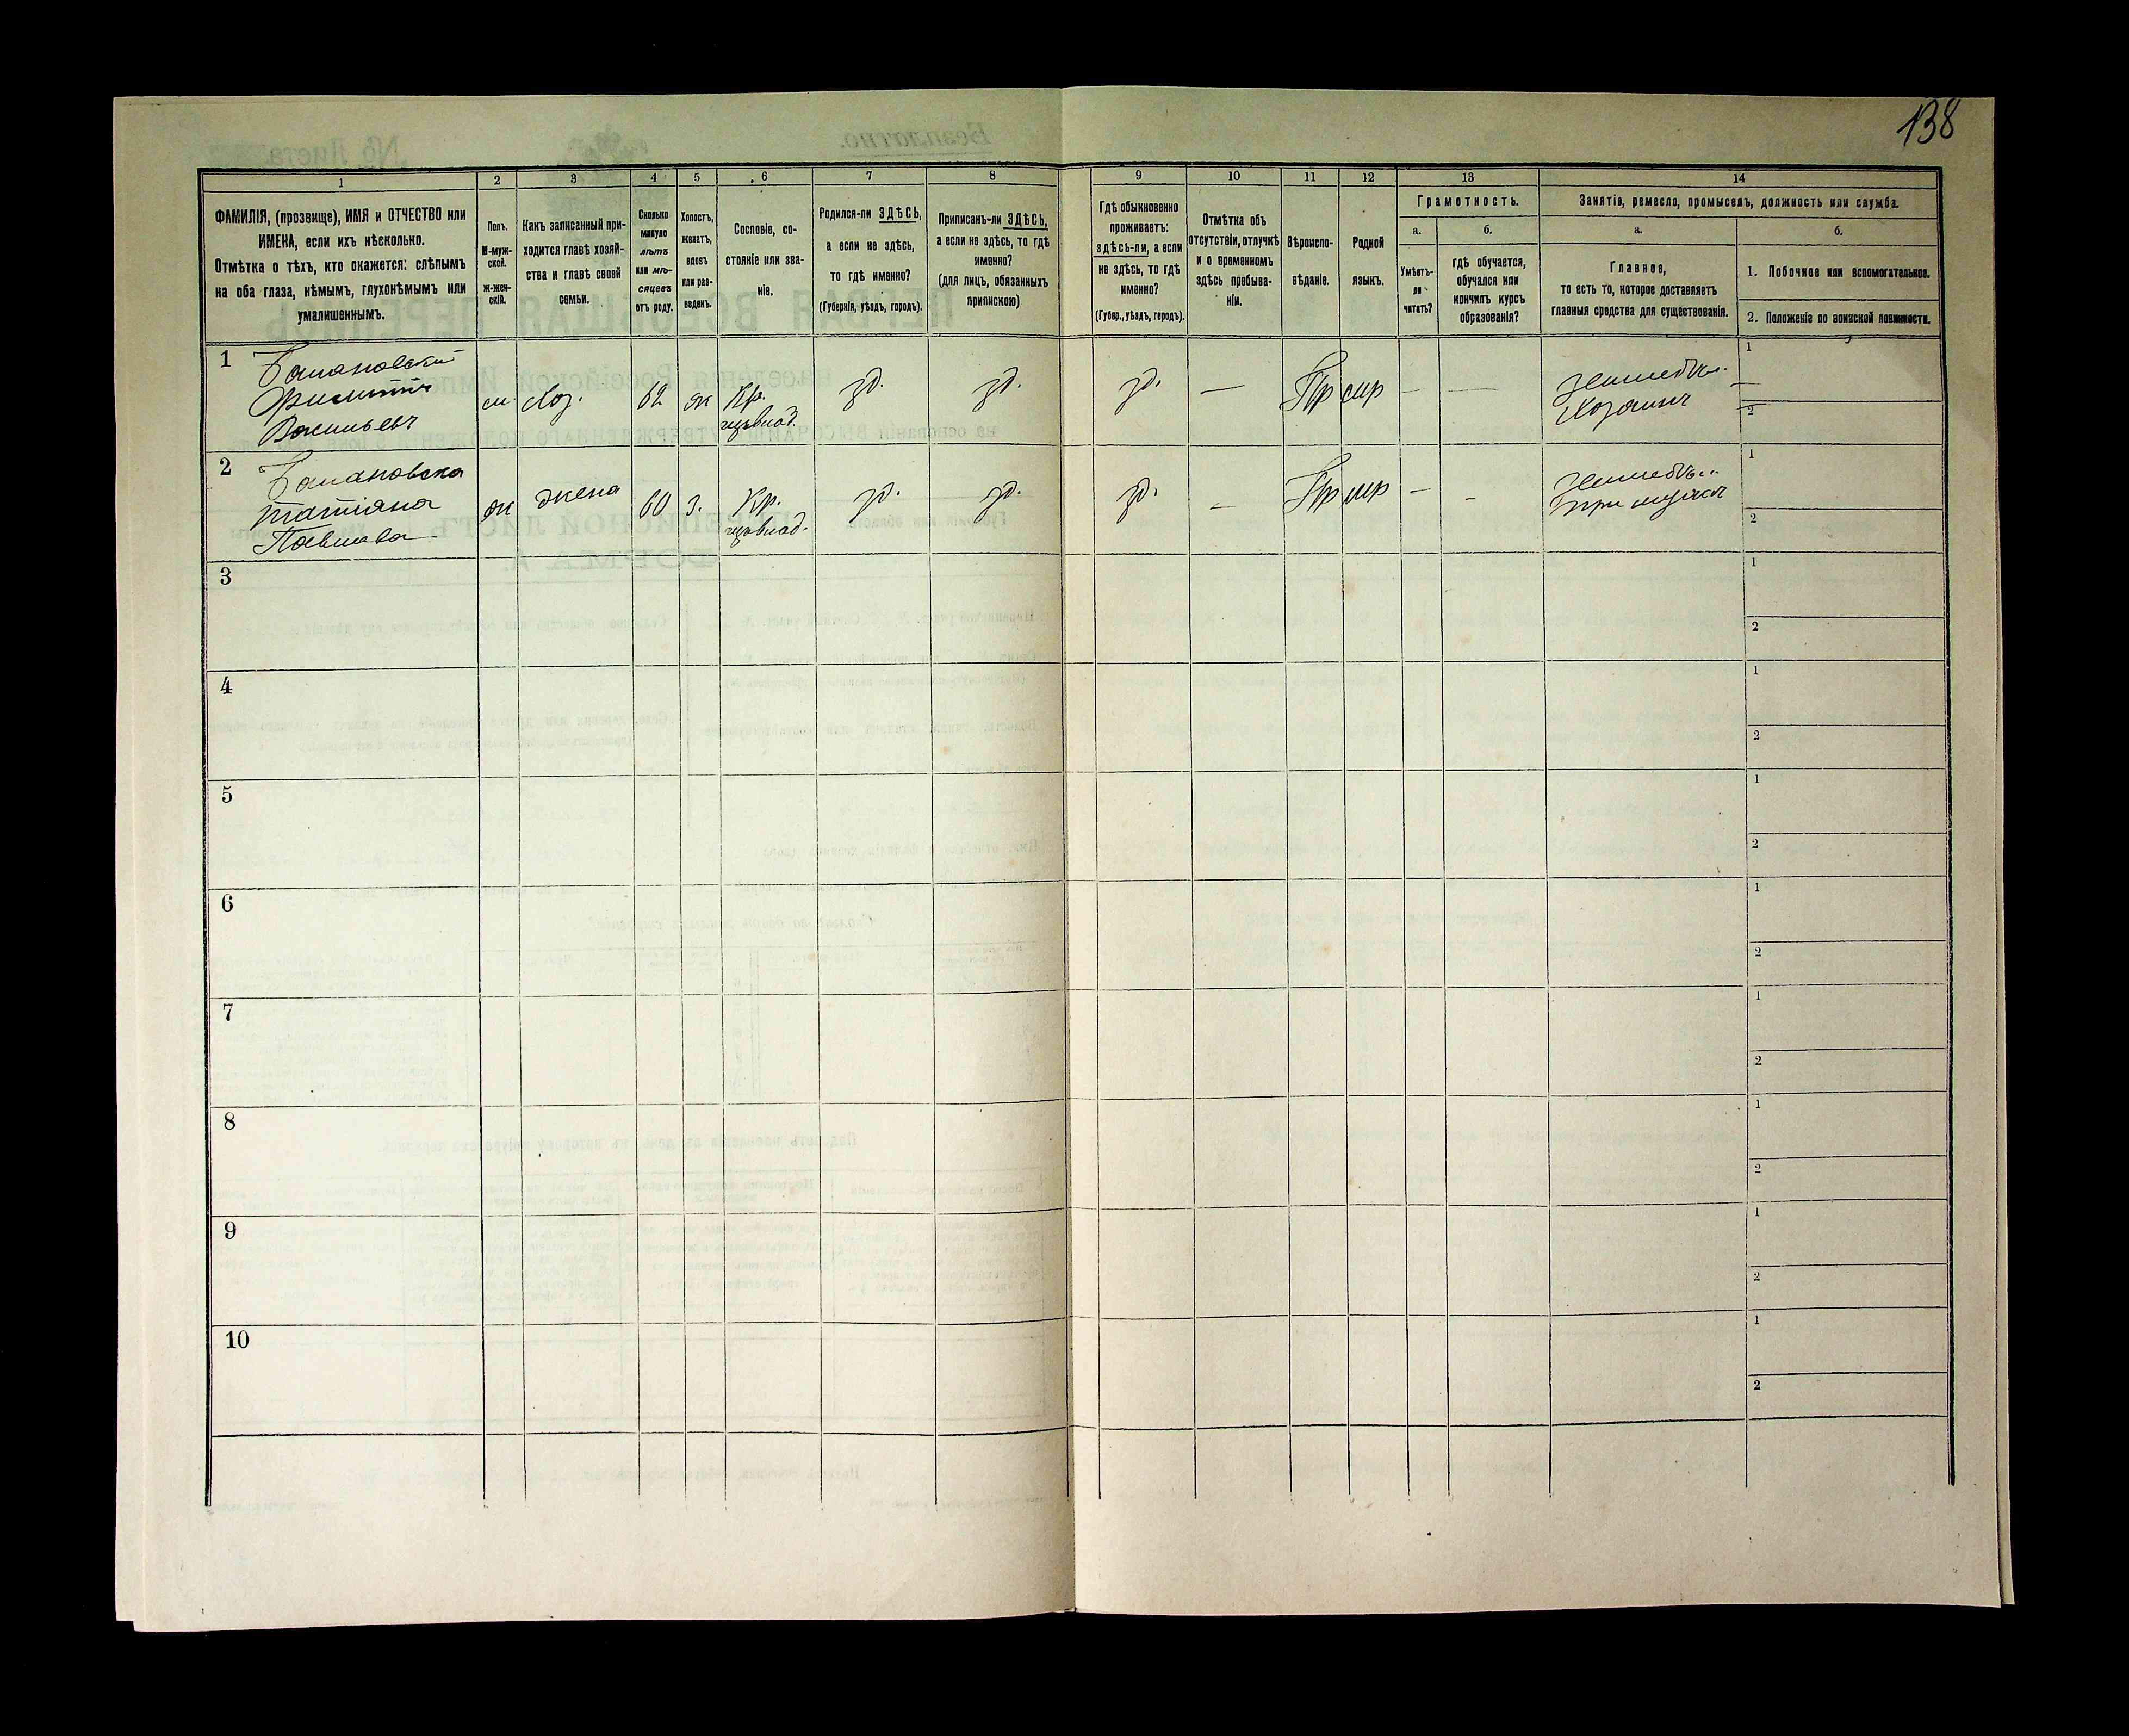 138
1
2
3
4
5
6
7
8
9
10
11
12
13
14
ФАМИЛІЯ, (прозвище), ИМЯ и ОТЧЕСТВО или
ИМЕНА, если ихъ нѣсколько.
Отмѣтка о тѣхъ, кто окажется: слѣпымъ
на оба глаза, нѣмымъ, глухонѣмымъ или
умалишеннымъ.
Полъ.
М-муж-
ской.
ж-жен-
скій.
Какъ записанный при-
ходится главѣ хозяй-
ства и главѣ своей
семьи.
Сколько
минуло
лѣтъ
или мѣ-
сяцевъ
отъ роду.
Холостъ,
женатъ,
вдовъ
или раз-
веденъ.
Сословіе, со-
стояніе или зва-
ніе.
Родился-ли ЗДѢСЬ,
а если не здѣсь,
то гдѣ именно?
(Губернія, уѣздъ, городъ).
Приписанъ-ли ЗДѢСЬ,
а если не здѣсь, то гдѣ
именно?
(для лицъ, обязанныхъ
припискою)
Гдѣ обыкновенно
проживаетъ:
здѣсь-ли, а если
не здѣсь, то гдѣ
именно?
(Губер., уѣздъ, городъ).
Отмѣтка объ
отсутствіи, отлучкѣ
и о временномъ
здѣсь пребыва-
ніи.
Вѣроиспо-
вѣданіе.
Родной
языкъ.
Грамотность.
а.
Умѣетъ-
ли
читать?
б.
гдѣ обучается,
обучался или
кончилъ курсъ
образованія?
Занятіе, ремесло, промыселъ, должность или служба.
а.
Главное,
то есть то, которое доставляетъ
главныя средства для существованія.
б.
1. Побочное или вспомогательное.
2. Положеніе по воинской повинности.
1
Васильевъ
м хоз. 62 ж Кр. зд. зд. зд. — Пр мр — —
Хозяинъ
1 —
2 —
2
Татіана
Павлова
ж жена 60 з. Кр. зд. зд. зд. — Пр мр — —
При мужѣ
1
2
3
1
2
4
1
2
5
1
2
6
1
2
7
1
2
8
1
2
9
1
2
10
1
2